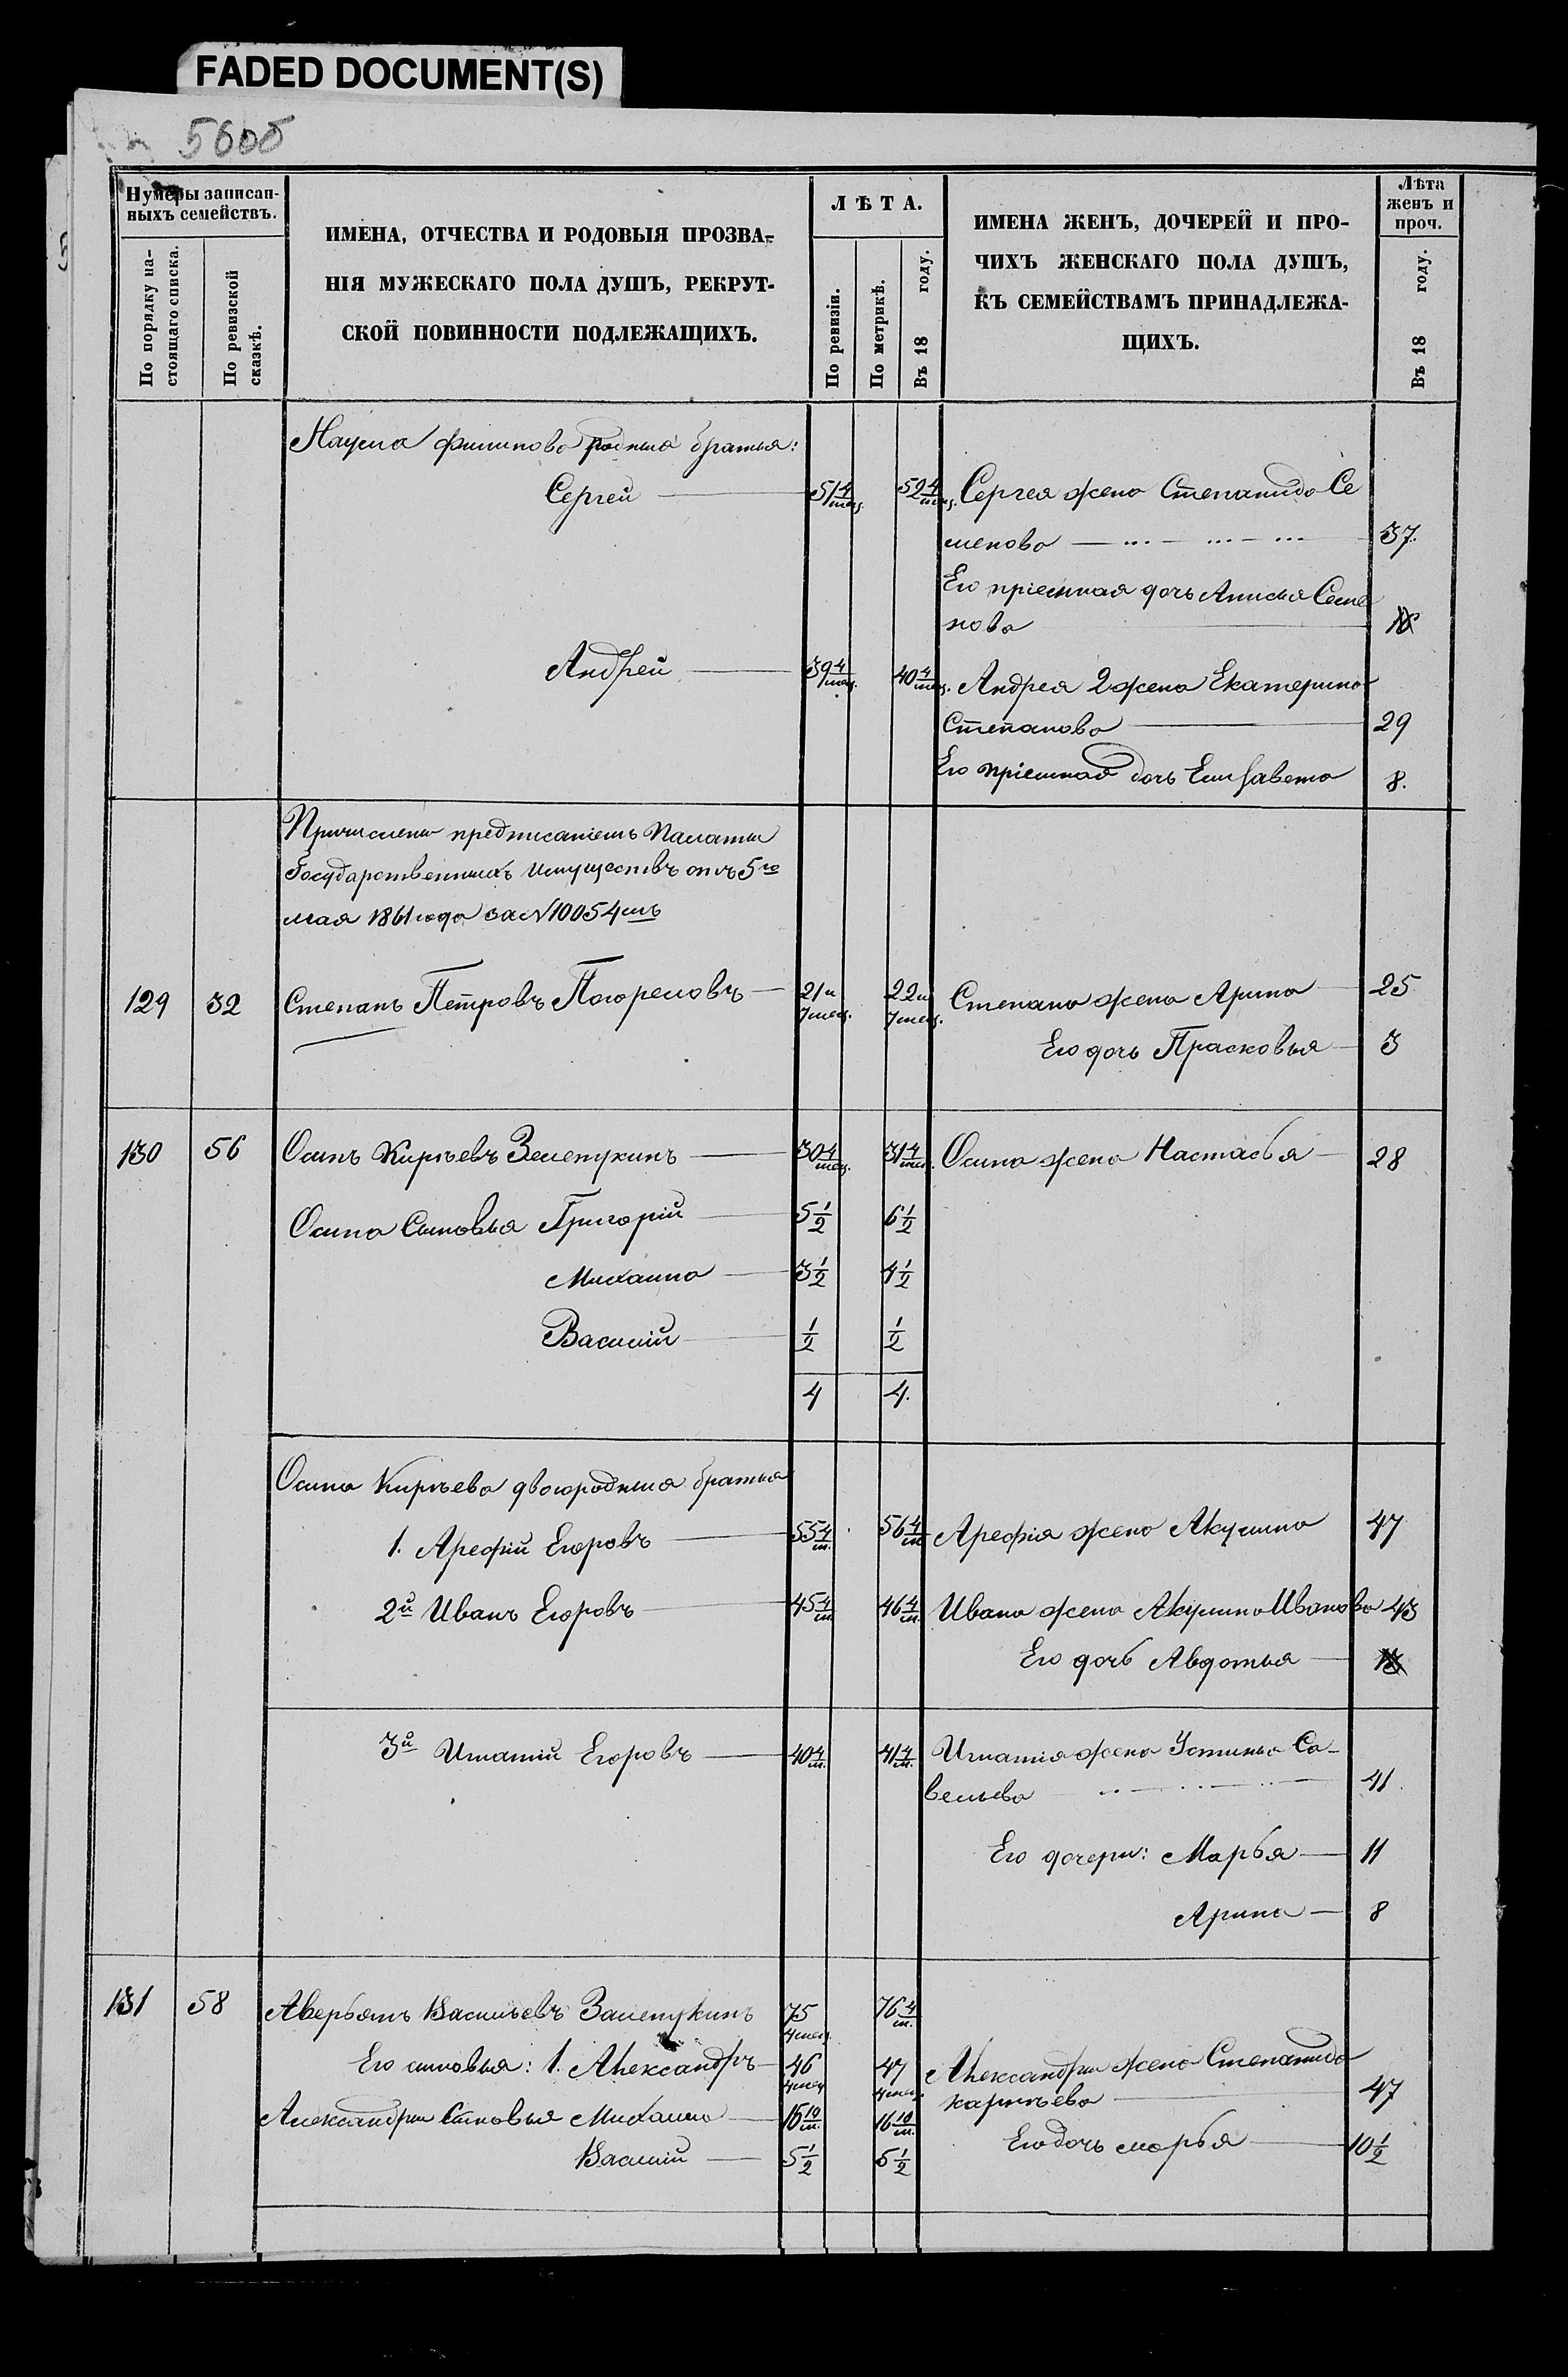 FADED DOCUMENT(S)
Нумеры записан-
ныхъ семействъ.
По порядку на-
стоящаго списка.
По ревизской
сказкѣ.
ИМЕНА, ОТЧЕСТВА И РОДОВЫЯ ПРОЗВА-
НІЯ МУЖЕСКАГО ПОЛА ДУШЪ, РЕКРУТ-
СКОЙ ПОВИННОСТИ ПОДЛЕЖАЩИХЪ.
ЛѢТА.
По ревизіи.
По метрикѣ.
Въ 18 году.
ИМЕНА ЖЕНЪ, ДОЧЕРЕЙ И ПРО-
ЧИХЪ ЖЕНСКАГО ПОЛА ДУШЪ,
КЪ СЕМЕЙСТВАМЪ ПРИНАДЛЕЖА-
ЩИХЪ.
Лѣта
женъ и
проч.
Въ 18 году.
Наума Филипова родныя братья:
Сергей 51 4/мец. 52 4/мец. Сергея жена Степанида Се
менова 37.
Его пріемная дочь Анисья Семе
нова
Андрей 39 4/мец. 40 4/мец. Андрея 2 жена Екатерина
Степанова 29
Его пріемная дочь Елисавета 8.
Причислены предписаніемъ Палаты
Государственныхъ Имуществъ отъ 5го
мая 1861 года за N 10054мъ
129 32 Степанъ Петровъ Погореловъ 21 и 7 мец. 22 и 7 мец. Степана жена Арина 25
Его дочь Прасковья 3
130 56 Осипъ Кирѣевъ Зелепукинъ 30 4/мец. 31 4/мец. Осипа жена Настасья 28
Осипа Сыновья Григорій 5 1/2 6 1/2
Михаила 3 1/2 4 1/2
Василій 1/2 1/2
4 4.
Осипа Кирѣева двоюродныя братья
1. Арефій Егоровъ 55 4/м. 56 4/м. Арефія жена Акулина 47
2й Иванъ Егоровъ 45 4/м. 46 4/м. Ивана жена Акулина Иванова 43
Его дочь Авдотья
3й Игнатій Егоровъ 40 4/м. 41 4/м. Игнатія жена Устинья Са-
вельева 41.
Его дочери: Марья 11
Арина 8
131 58 Аверьянъ Васильевъ Залепукинъ 75 4 мец. 76 4/м.
Его сыновья: 1. Александръ 46 4 мец. 47 4 мец. Александры жена Степанида
карпѣева 47
Александры Сыновья Михаила 15 10/м. 16 10/м.
Его дочь марья 10 1/2
Василій 5 1/2 6 1/2